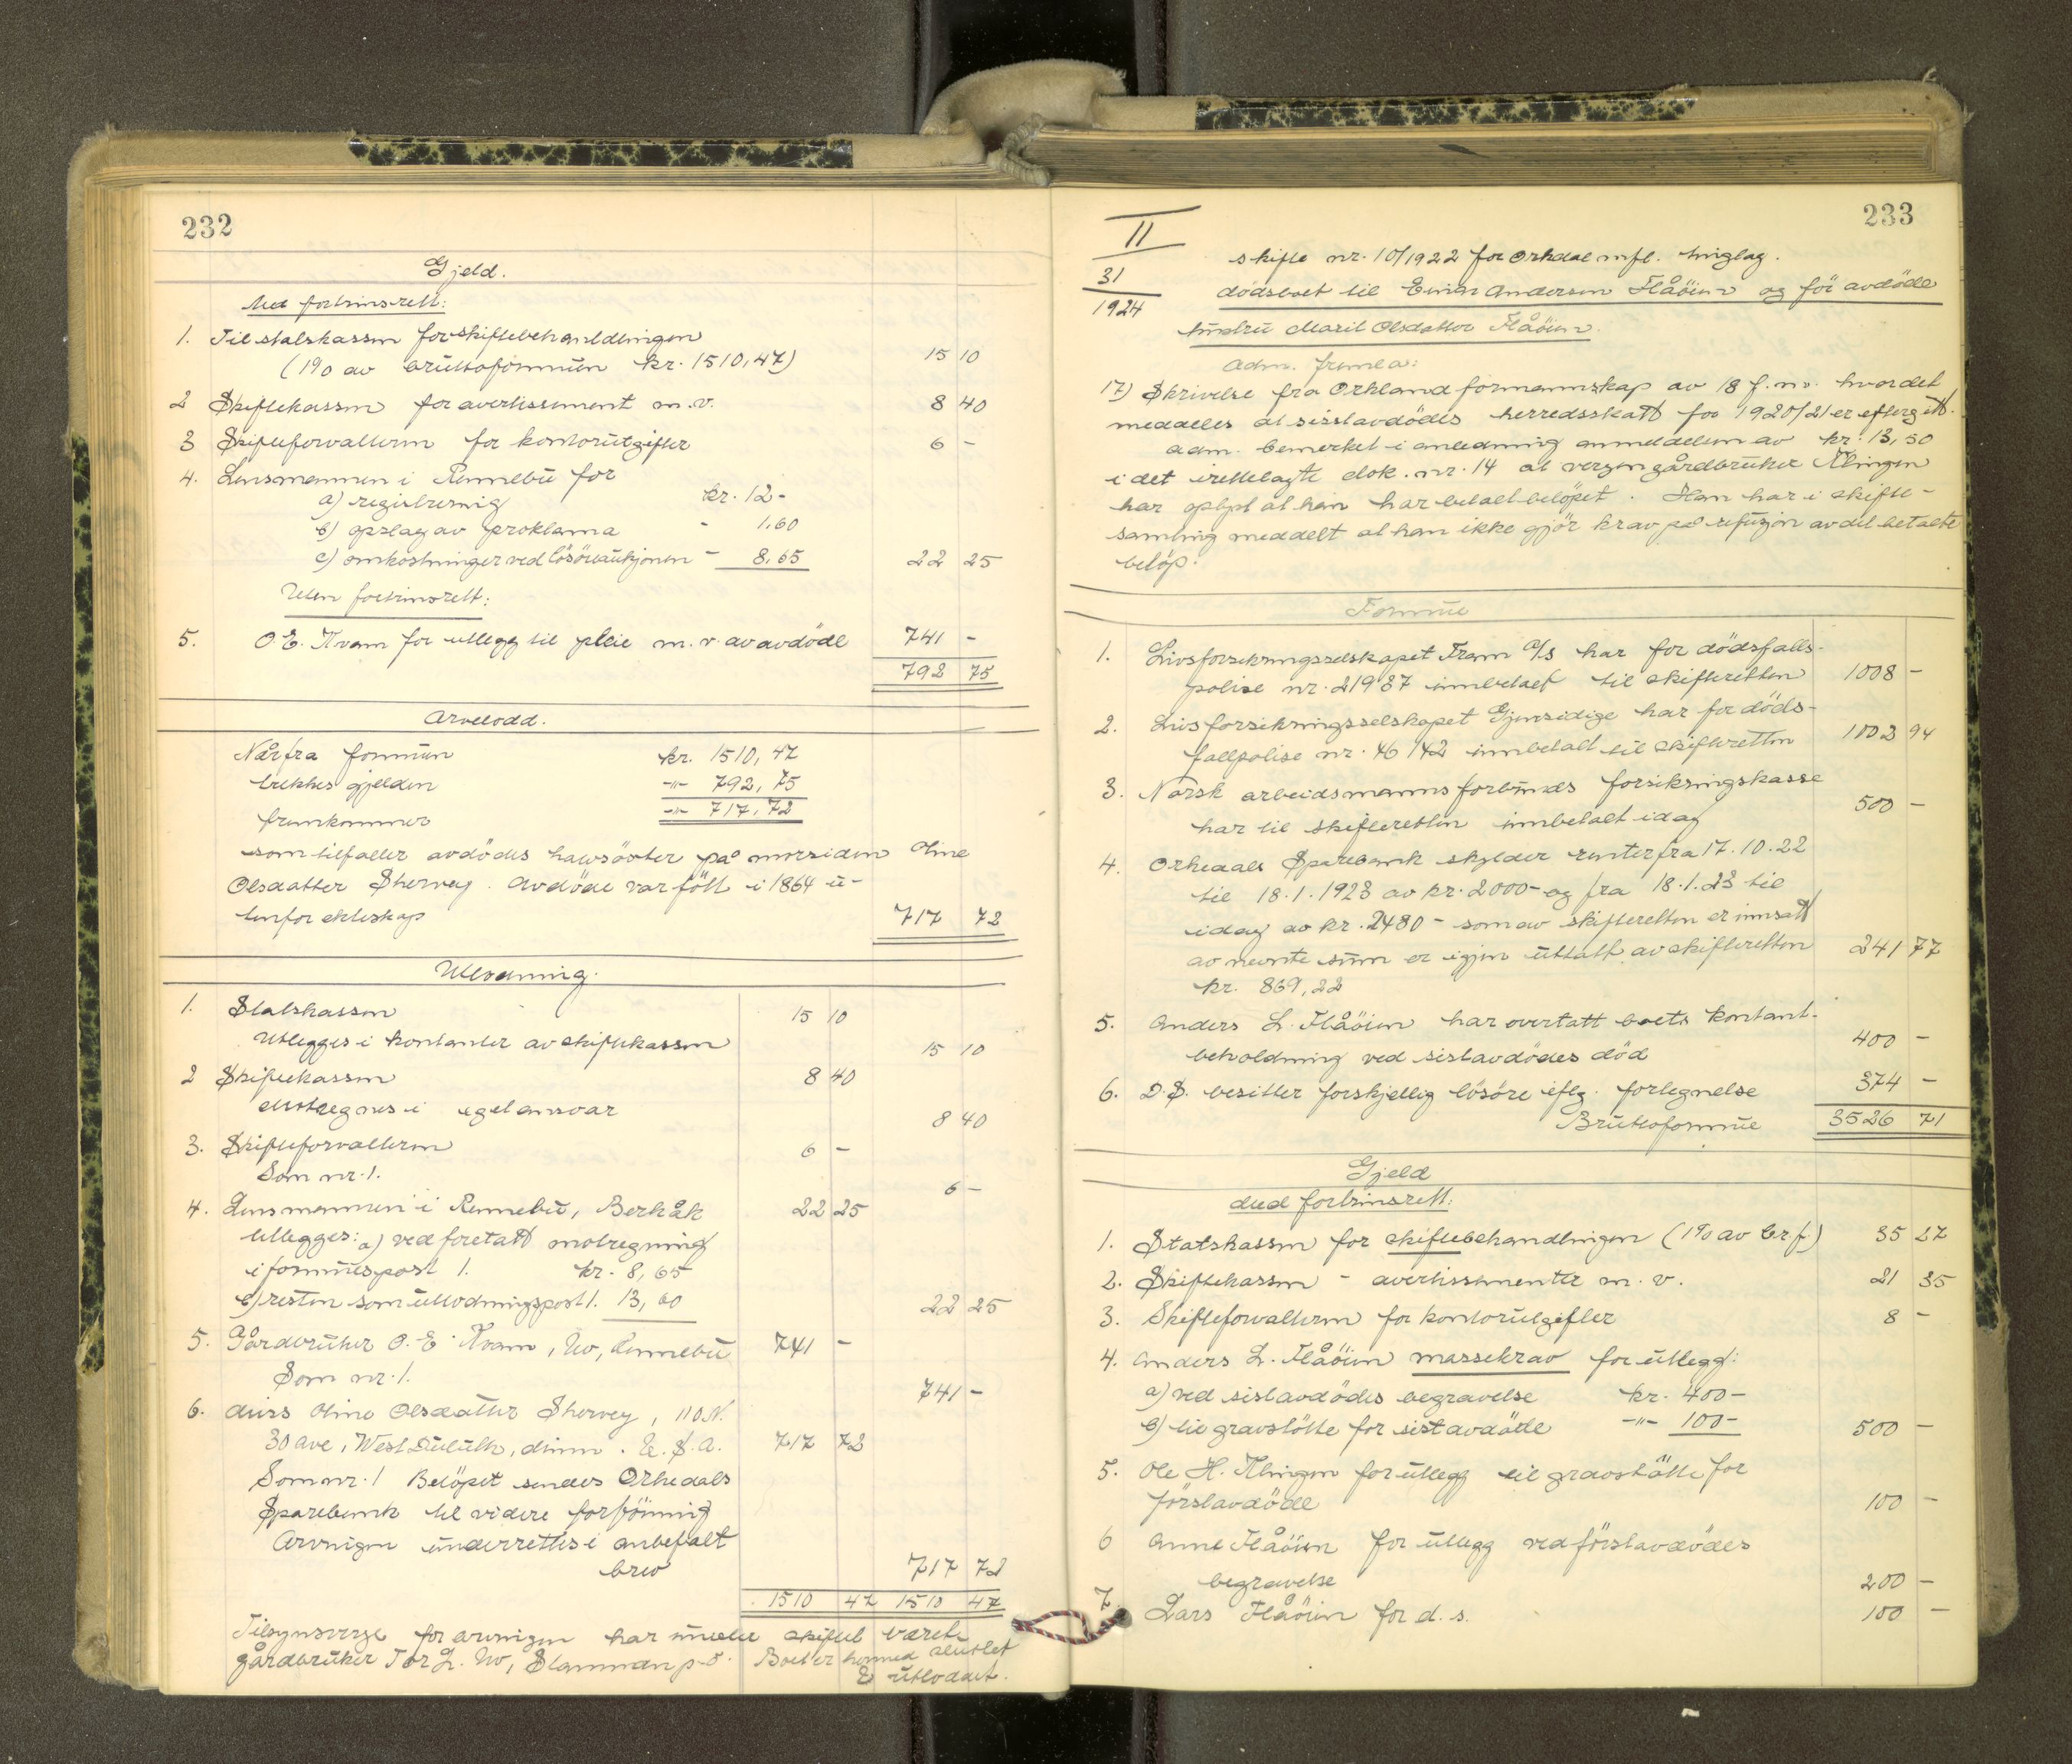 232
Gjeld.
Med fortrinsrett:
1. Til statskassen for skiftebehandlingen
(1% av bruttoformuen kr. 1510,47) 15 10
2 Skiftekassen for avertissement m.v. 8 40
3 Skifteforvalteren for kontorutgifter 6 -
4. Lensmannen i Rennebu for
a) registrering kr. 12-
b) opslag av proklama - 1,60
c) omkostninger ved lösöreauksjonen - 8,65 22 25
Uten fortrinsrett:
5. O.E. Kvam for utlegg til pleie m.v. av avdöde 741 -
792 75
Arvelodd.
Når fra formuen kr. 1510,47
trekkes gjelden -"- 792,75
fremkommer -"- 717,72
som tilfaller avdödes halvsöster på morsiden Oline
Olsdatter Shervey. Avdöde var födt i 1864 u-
tenfor ekteskap 717 72
Utlodning.
1. Statskassen 15 10
Utlegges i kontanter av skiftekassen 15 10
2 Skiftekassen 8 40
Motregnes i eget ansvar 8 40
3. Skifteforvalteren 6 -
Som nr. 1. 6 -
4. Lensmannen i Rennebu, Berkåk 22 25
Utlegges: a) ved foretatt motregning
i formuespost 1. kr. 8,65
b) resten som utlodningspost 1. 13,60 22 25
5. Gårdbruker O.E. Kvam, Uv, Rennebu 741 -
Som nr. 1. 741 -
6. Miss Oline Olsdatter Shervey, 110 N.
30 ave, West Duluth, Minn. U.S.A. 717 72
Som nr. 1 Belöpet sendes Orkedals
Sparebank til videre forföining
Arvingen underrettes i anbefalt
brev 717 72
1510 47 1510 47
Tilsynsverge for arvingen har under skiftet været
gårdbruker Tor L. Uv, Stammen p.å. Boet er hermed sluttet
& utloddet.
233
II
31
1924
Skifte nr. 10/1922 for Orkdal mfl. tinglag.
dödsboet til Einar Andersen Flåöien og för avdöde
hustru Marit Olsdatter Flåöien.
Adm. fremla:
17) Skrivelse fra Orkland formannskap av 18 f.m. hvor det
meddeles at sistavdödes herredsskatt for 1920/21 er eftergitt.
Adm. bemerket i anledning anmeldelsen av kr. 13,50
i det irettelagte dok. nr. 14 at vergen gårdbruker Klingen
har oplyst at han har betalt belöpet. Han har i skifte-
samling meddelt at han ikke gjör krav på refusjon av det betalte
belöp.
Formue
1. Livsforsikringsselskapet Fram A/S har for dödsfalls-
polise nr. 21987 innbetalt til skifteretten 1008 -
2. Livsforsikringsselskapet Gjensidige har for döds-
fallpolise nr. 46142 innbetalt til skifteretten 1002 94
3. Norsk arbeidsmannsforbunds forsikringskasse
har til skifteretten innbetalt idag 500 -
4. Orkedals Sparebank skylder renter fra 17.10.22
til 18.1.1923 av kr. 2000- og fra 18.1.23 til
idag av kr. 2480 - som av skifteretten er innsatt
av nevnte sum er igjen uttatt av skifteretten 241 77
kr. 869,22
5. Anders L. Flåöien har overtatt boets kontant-
beholdning ved sistavdödes död 400 -
6. D.S. besitter forskjellig lösöre eftg. fortegnelse 374 -
Bruttoformue 3526 71
Gjeld
Med fortrinsrett:
1. Statskassen for skiftebehandlingen (1% av br.f.) 35 27
2. Skiftekassen - avertissementer m.v. 21 35
3. Skifteforvalteren for kontorutgifter 8 -
4. Anders L. Flåöien massekrav for utlegg:
a) ved sistavdödes begravelse kr. 400-
b) til gravstötte for sistavdöde -"- 100- 500 -
5. Ole H. Klingen for utlegg til gravstötte for
förstavdöde 100 -
6 Anne Flåöien for utlegg ved förstavdödes
begravelse 200 -
7. Lars Flåöien for d.s. 100 -